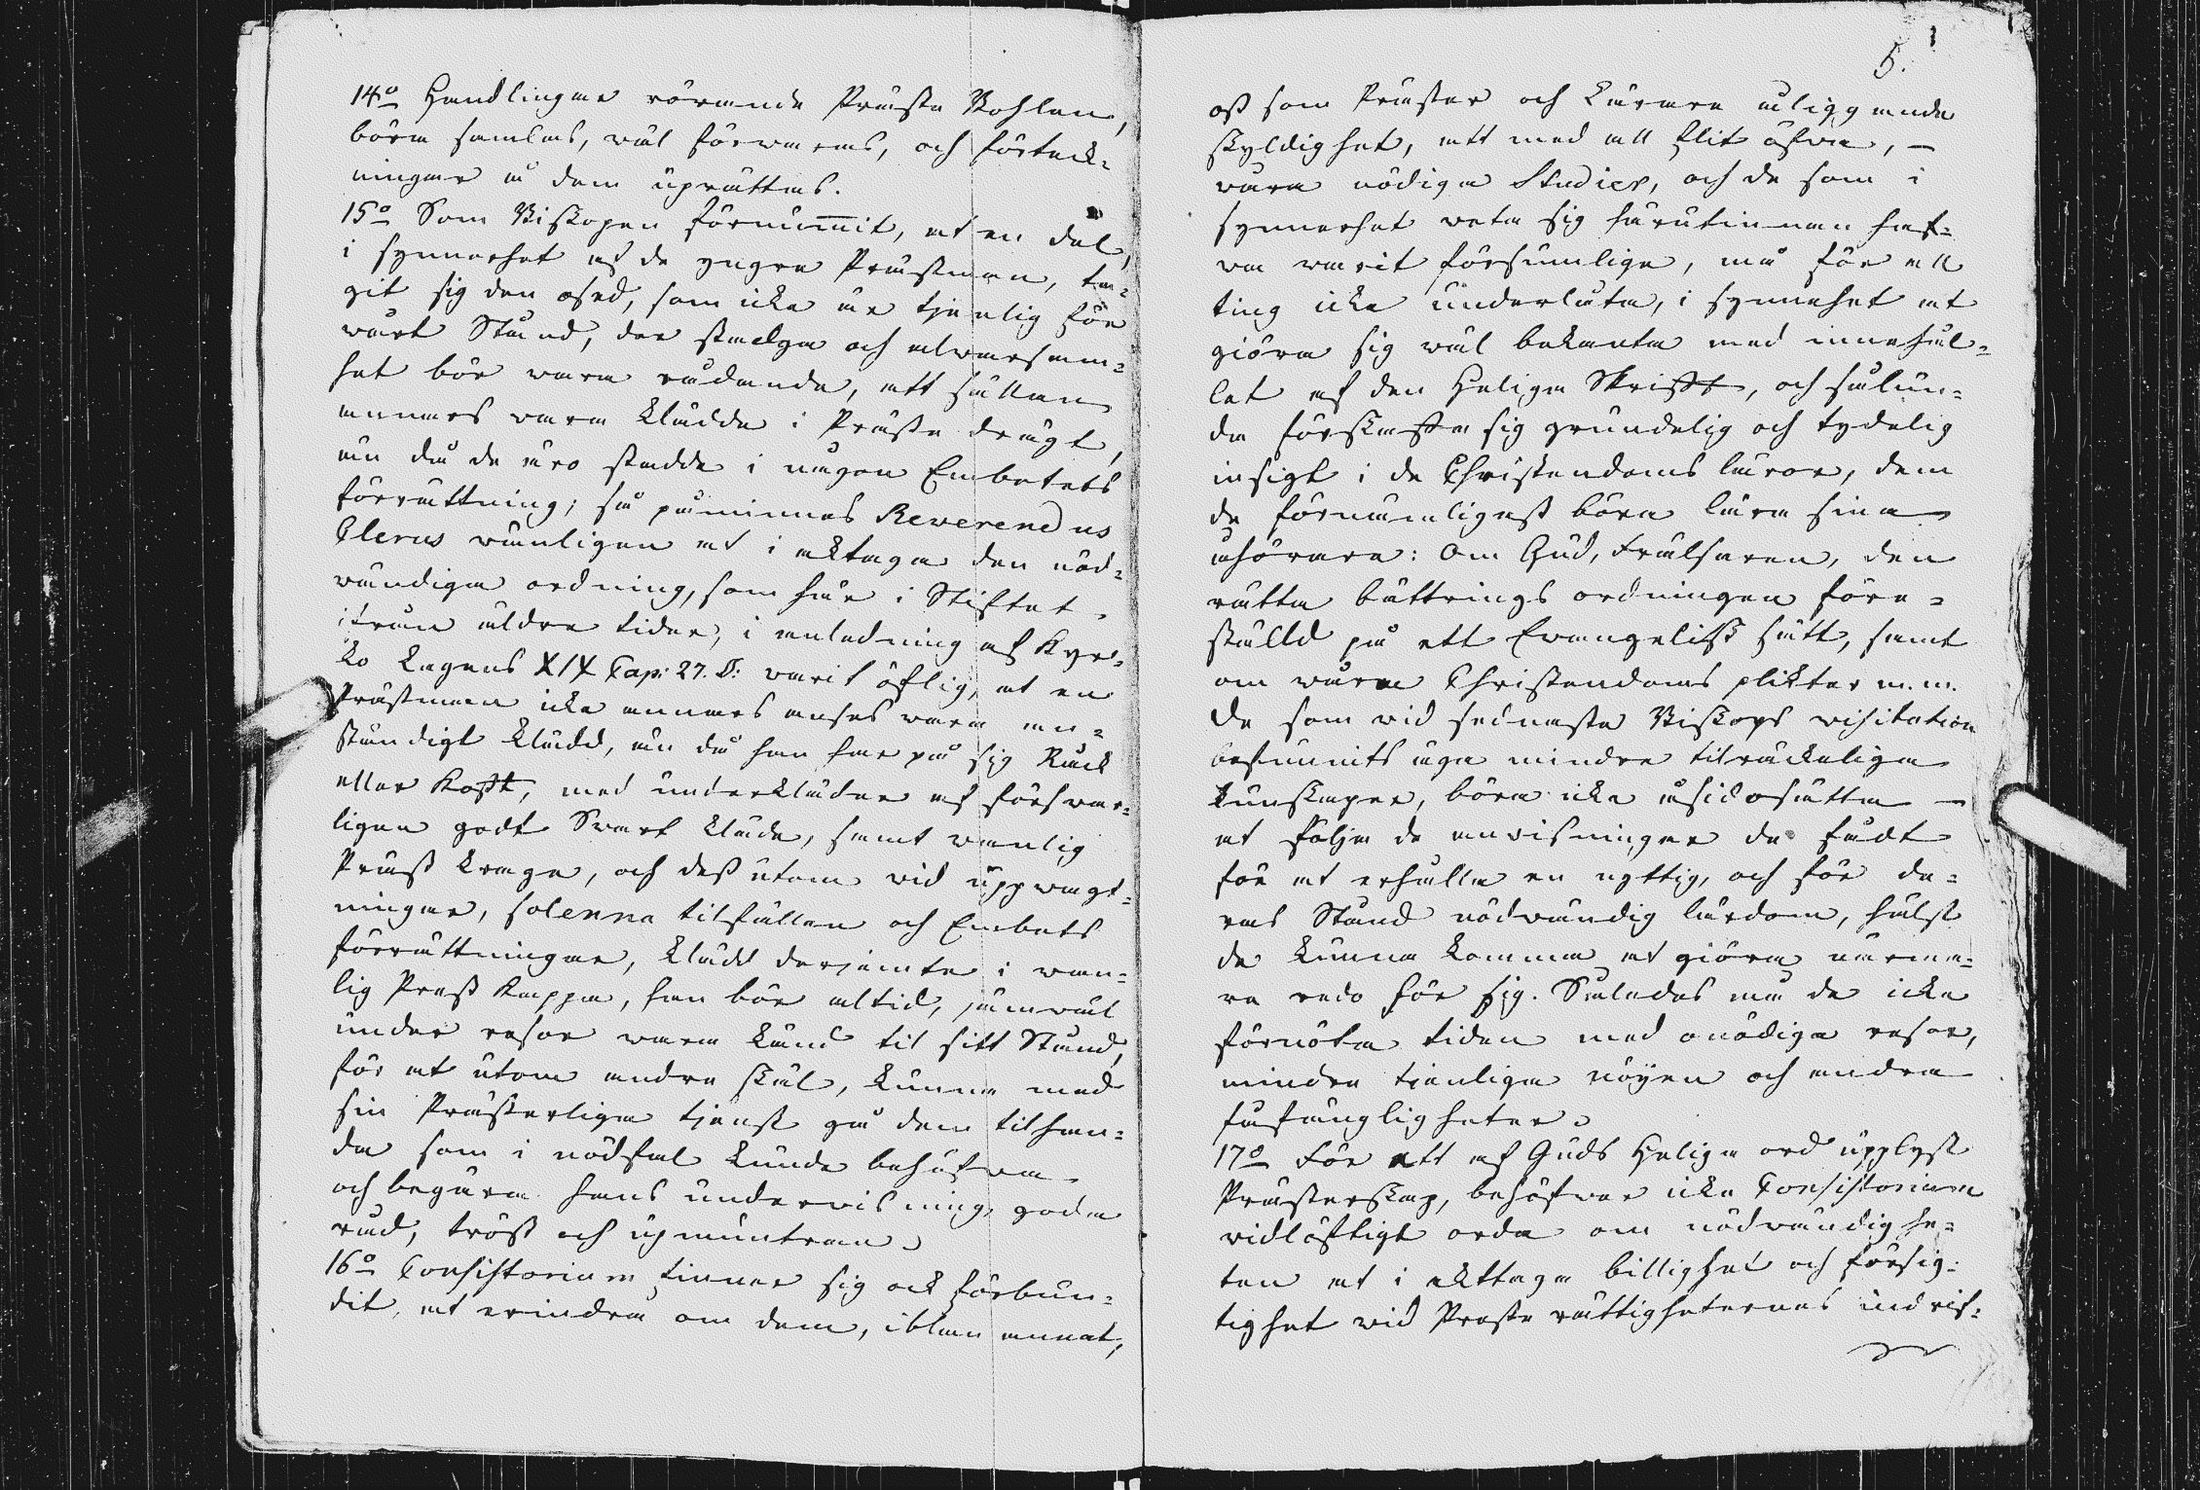 14o Handlingar rörande Präste Bohlen,
böra samlas, wäl förwaras, och förteck=
ningar å dem uprättas.
15o Som Biskopen förnummit, at en del,
i synnerhet af de yngre Prästman, ta=
git sig den osed, som icka är tjenlig för
wårt Stånd, der stadga och alwarsam=
het bör wara rådande, att sällan
annars wara klädde i Präste drägt,
än då de äro stadde i någon Embetets
förrättning; så påminnes Reverendus
Clerus wänligen at i akttaga den nöd=
wändiga ordning, som här i Stiftet,
ifrån äldre tider, i anledning af Kyr=
ko Lagens XIX Cap: 27. §: warit öflig, at en
Prästman icka annars anses wara an=
ständigt klädd, än då han har på sig Råck
eller Kaftt, med underkläder af förswar=
ligen godt Swart kläde, samt wanlig
Präst krage, och dessutom wid uppwagt=
ningar, solenna tilfällen och Embets
förrättningar, klädd derjemte i wan=
lig Prest Kappa, han bör altid, jämwäl
under resor wara känd til sitt Stånd,
för at utom andra skäl, kunna med
sin Prästerliga tjenst gå dem tilhan=
da som i nödfal kunde behöfwa
och begära hans underwisning, goda
råd, tröst och upmuntran.
16o Consistorium finner sig ock förbun=
dit, at erindra om dem, ibland annat,
5.
oss som Präster och Lärare åliggande
skyldighet, att med all flit öfwa, –
wåra nödiga Studier, och de som i
synnerhet weta sig härutinnan haf=
wa warit försumliga, må för all
ting icka underlåta, i synnerhet at
giöra sig wäl bekanta med innehål=
let af den Heliga Skrifft, och sålun=
da förskaffa sig grundelig och tydelig
insigt i de Christendoms läror, dem
de förnämligast böra lära sina
åhörare: Om Gud, Frälsaren, den
rätta bättrings ordningen före=
ställd på ett Evangeliskt sätt, samt
om wåra Christendoms plikter m.m.
De som wid sednaste Biskops visitation
befunnits äga mindre tilräckeliga
kunskaper, böra icka åsidosätta –
at följa de anvisningar de fådt
för at erhålla en nyttig, och för de=
ras Stånd nödwändig lärdom, hälst
de kunna komma at giöra närma=
re redo för sig. Således må de icka
förnöta tiden med onödiga resor,
mindre tjenliga nöjen och andra
fåfängligheter.
17o För ett af Guds Heliga ord upplyst
Prästerskap, behöfwer icka Consistorium
vidlöftigt orda om nödwändighe=
ten at i akttaga billighet och försig=
tighet wid Preste rättigheternas indrif=